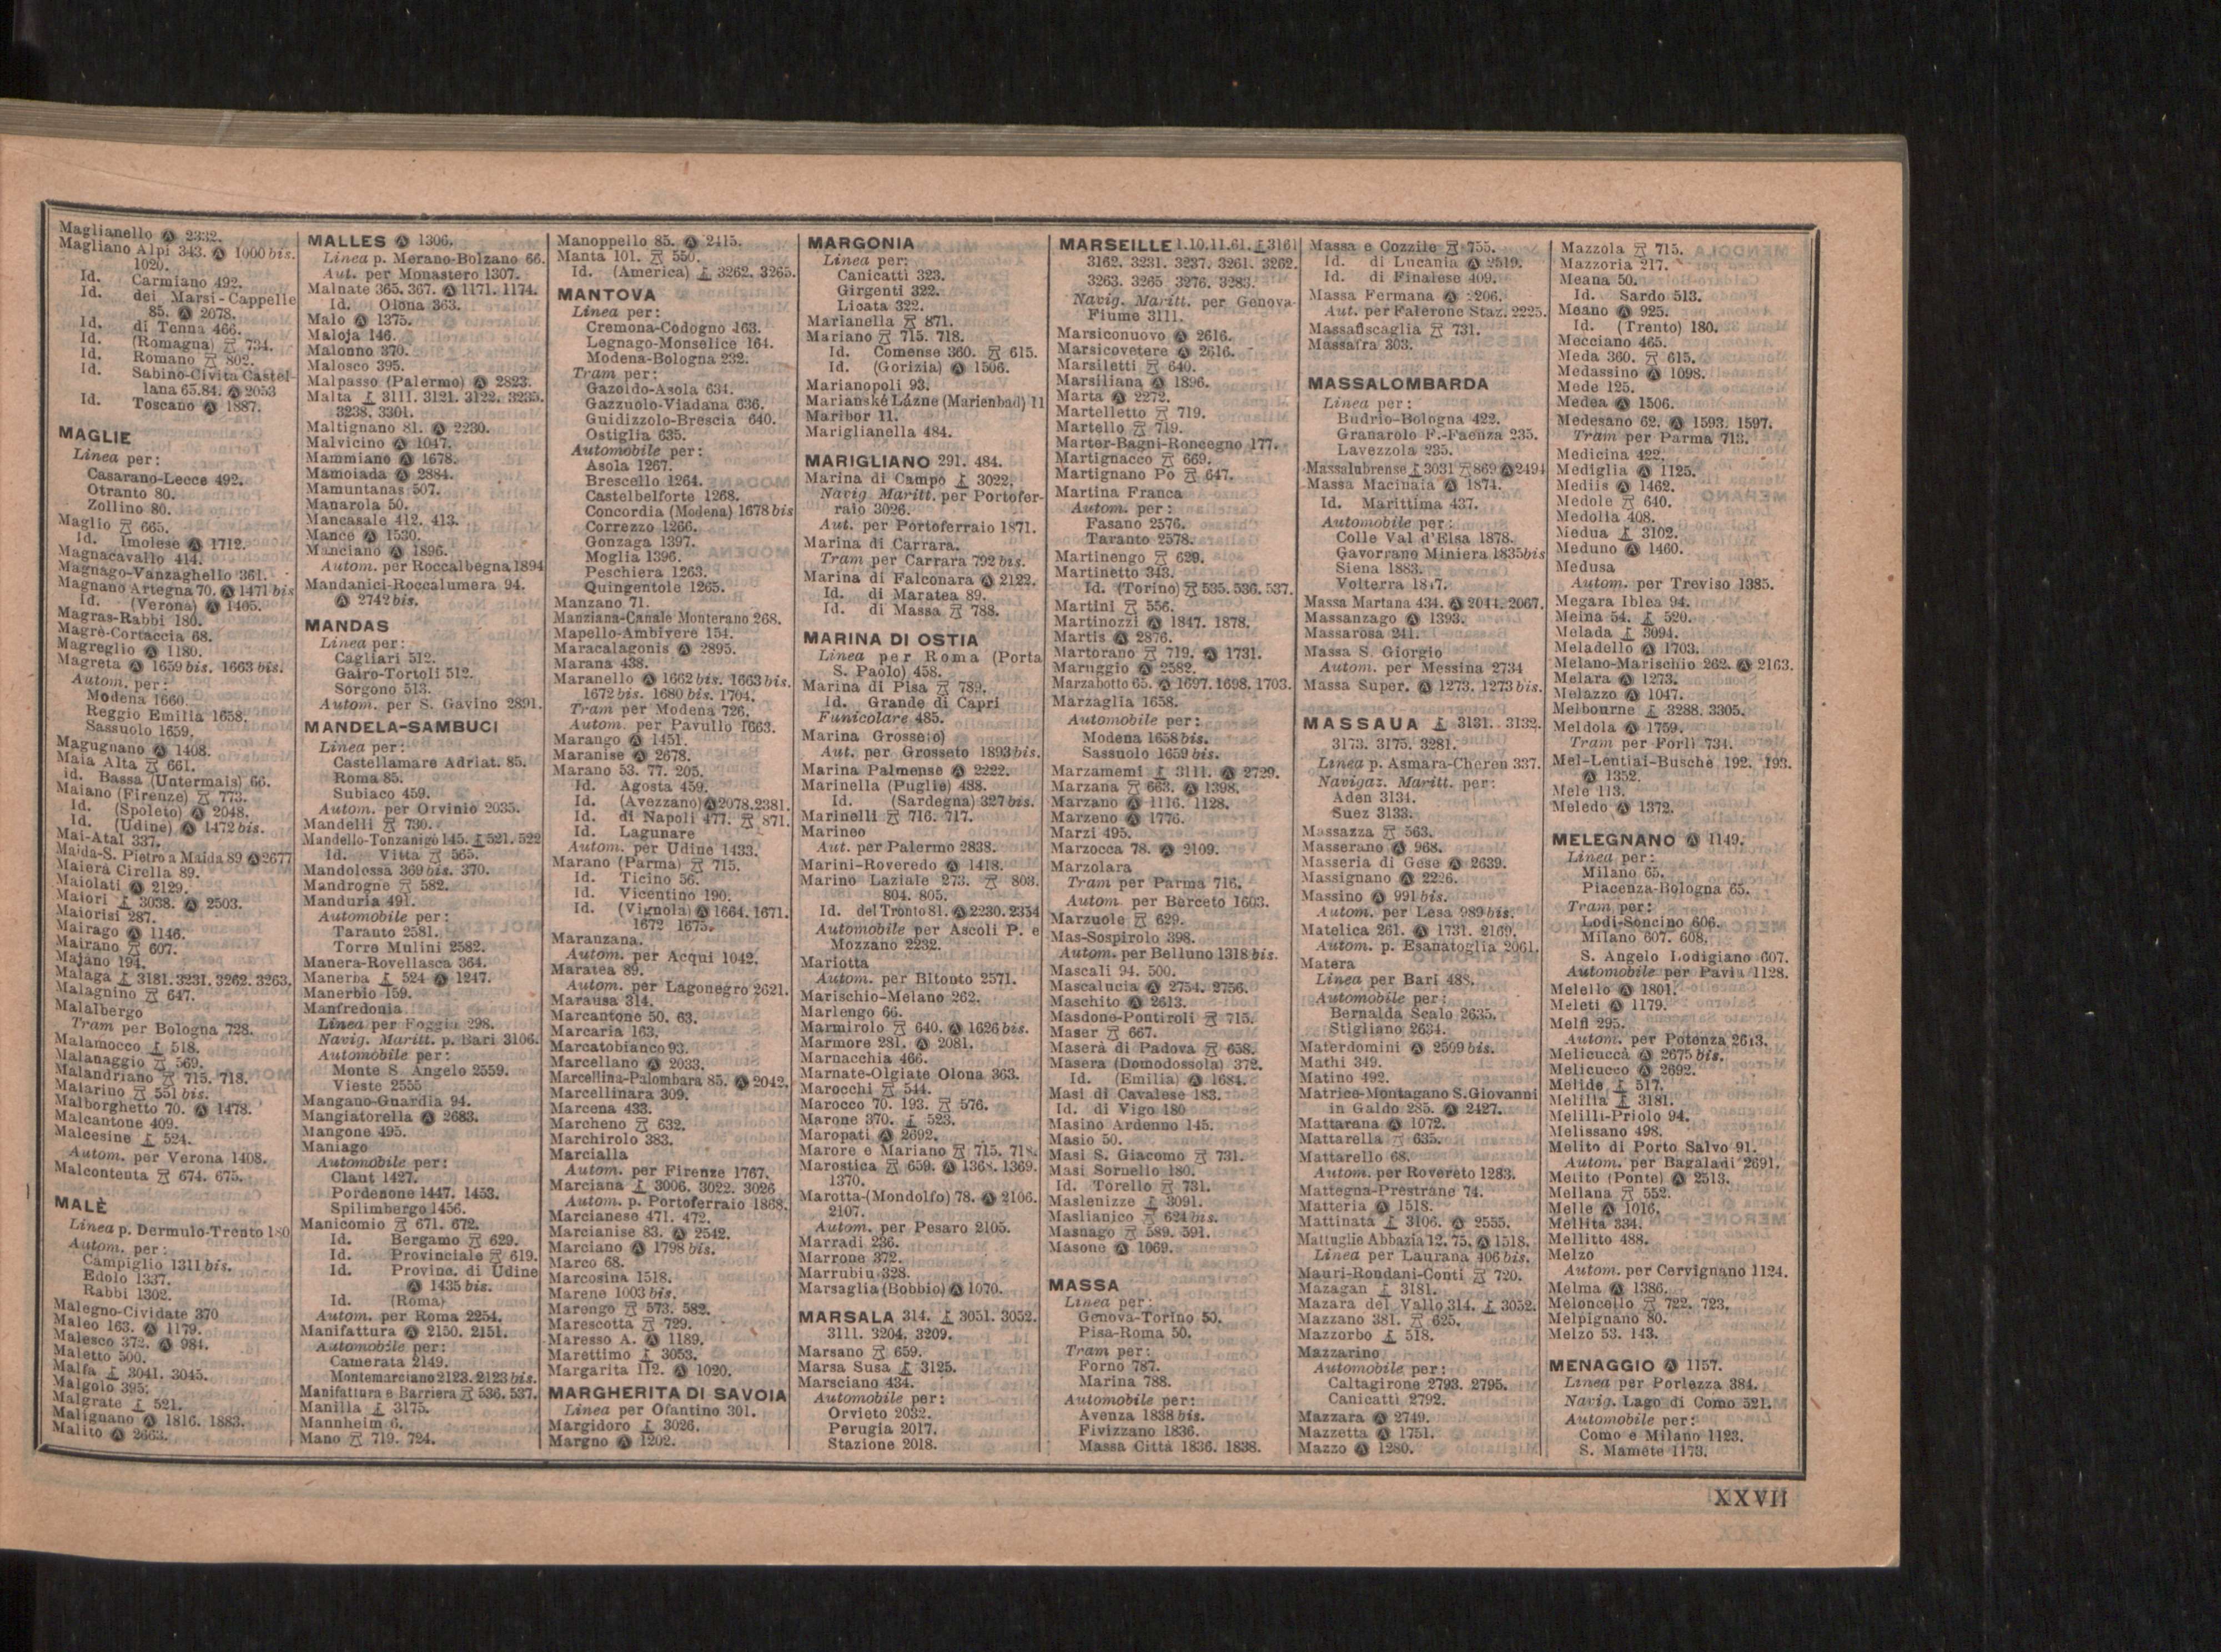 Maglianello Ⓐ 2332.
Magliano Alpi 343. Ⓐ 1000 bis.
1020.
Id. Carmiano 492.
Id. dei Marsi-Cappelle
85. Ⓐ 2078.
Id. di Tenna 466.
Id. (Romagna) 734.
Id. Romano 802.
Id. Sabino-Civita Castel-
lana 65.84. Ⓐ 2053
Id. Toscano Ⓐ 1887.
MAGLIE
Linea per:
Casarano-Lecce 492.
Otranto 80.
Zollino 80.
Maglio 665.
Id. Imolese Ⓐ 1712.
Magnacavallo 414.
Magnago-Vanzaghello 361.
Magnano Artegna 70. Ⓐ 1471 bis
Id. (Verona) Ⓐ 1405.
Magras-Rabbi 180.
Magrè-Cortaccia 68.
Magreglio Ⓐ 1180.
Magreta Ⓐ 1659 bis. 1663 bis.
Autom. per:
Modena 1660.
Reggio Emilia 1658.
Sassuolo 1659.
Magugnano Ⓐ 1408.
Maia Alta 661.
id. Bassa (Untermais) 66.
Maiano (Firenze) 773.
Id. (Spoleto) Ⓐ 2048.
Id. (Udine) Ⓐ 1472 bis.
Mai-Atal 337.
Maida-S. Pietro a Maida 89 Ⓐ 2677
Maierà Cirella 89.
Maiolati Ⓐ 2129.
Maiori 3038. Ⓐ 2503.
Maiorisi 287.
Mairago Ⓐ 1146.
Mairano 607.
Majano 194.
Malaga 3181. 3231. 3262. 3263.
Malagnino 647.
Malalbergo
Tram per Bologna 728.
Malamocco 518.
Malanaggio 569.
Malandriano 715. 718.
Malarino 551 bis.
Malborghetto 70. Ⓐ 1478.
Malcantone 409.
Malcesine 524.
Autom. per Verona 1408.
Malcontenta 674. 675.
MALÈ
Linea p. Dermulo-Trento 180
Autom. per:
Campiglio 1311 bis.
Edolo 1337.
Rabbi 1302.
Malegno-Cividate 370
Maleo 163. Ⓐ 1179.
Malesco 372. Ⓐ 984.
Maletto 500.
Malfa 3041. 3045.
Malgolo 395.
Malgrate 521.
Malignano Ⓐ 1816. 1883.
Malito Ⓐ 2663.
MALLES Ⓐ 1306.
Linea p. Merano-Bolzano 66.
Aut. per Monastero 1307.
Malnate 365. 367. Ⓐ 1171. 1174.
Id. Olona 363.
Malo Ⓐ 1375.
Maloja 146.
Malonno 370.
Malosco 395.
Malpasso (Palermo) Ⓐ 2823.
Malta 3111. 3121. 3122. 3235.
3238. 3301.
Maltignano 81. Ⓐ 2230.
Malvicino Ⓐ 1047.
Mammiano Ⓐ 1678.
Mamoiada Ⓐ 2884.
Mamuntanas 507.
Manarola 50.
Mancasale 412. 413.
Mance Ⓐ 1530.
Manciano Ⓐ 1896.
Autom. per Roccalbegna 1894
Mandanici-Roccalumera 94.
Ⓐ 2742 bis.
MANDAS
Linea per:
Cagliari 512.
Gairo-Tortolì 512.
Sorgono 513.
Autom. per S. Gavino 2891.
MANDELA-SAMBUCI
Linea per:
Castellamare Adriat. 85.
Roma 85.
Subiaco 459.
Autom. per Orvinio 2035.
Mandelli 730.
Mandello-Tonzanigo 145. 521. 522
Id. Vitta 565.
Mandolossa 369 bis. 370.
Mandrogne 582.
Manduria 491.
Automobile per:
Taranto 2581.
Torre Mulini 2582.
Manera-Rovellasca 364.
Manerba 524 Ⓐ 1247.
Manerbio 159.
Manfredonia
Linea per Foggia 298.
Navig. Maritt. p. Bari 3106.
Automobile per:
Monte S. Angelo 2559.
Vieste 2555
Mangano-Guardia 94.
Mangiatorella Ⓐ 2683.
Mangone 495.
Maniago
Automobile per:
Claut 1427.
Pordenone 1447. 1453.
Spilimbergo 1456.
Manicomio 671. 672.
Id. Bergamo 629.
Id. Provinciale 619.
Id. Provinc. di Udine
Ⓐ 1435 bis.
Id. (Roma)
Autom. per Roma 2254.
Manifattura Ⓐ 2150. 2151.
Automobile per:
Camerata 2149.
Montemarciano 2123. 2123 bis.
Manifattura e Barriera 536. 537.
Manilla 3175.
Mannheim 6.
Mano 719. 724.
Manoppello 85. Ⓐ 2415.
Manta 101. 550.
Id. (America) 3262. 3265.
MANTOVA
Linea per:
Cremona-Codogno 163.
Legnago-Monselice 164.
Modena-Bologna 232.
Tram per:
Gazoldo-Asola 634.
Gazzuolo-Viadana 636.
Guidizzolo-Brescia 640.
Ostiglia 635.
Automobile per:
Asola 1267.
Brescello 1264.
Castelbelforte 1268.
Concordia (Modena) 1678 bis
Correzzo 1266.
Gonzaga 1397.
Moglia 1396.
Peschiera 1263.
Quingentole 1265.
Manzano 71.
Manziana-Canale Monterano 268.
Mapello-Ambivere 154.
Maracalagonis Ⓐ 2895.
Marana 438.
Maranello Ⓐ 1662 bis. 1663 bis.
1672 bis. 1680 bis. 1704.
Tram per Modena 726.
Autom. per Pavullo 1663.
Marango Ⓐ 1451.
Maranise Ⓐ 2678.
Marano 53. 77. 205.
Id. Agosta 459.
Id. (Avezzano) Ⓐ 2078.2381.
Id. di Napoli 477. 871.
Id. Lagunare
Autom. per Udine 1433.
Marano (Parma) 715.
Id. Ticino 56.
Id. Vicentino 190.
Id. (Vignola) Ⓐ 1664. 1671.
1672 1675.
Maranzana.
Autom. per Acqui 1042.
Maratea 89.
Autom. per Lagonegro 2621.
Marausa 314.
Marcantone 50. 63.
Marcaria 163.
Marcatobianco 93.
Marcellano Ⓐ 2033.
Marcellina-Palombara 85. Ⓐ 2042.
Marcellinara 309.
Marcena 433.
Marcheno 632.
Marchirolo 383.
Marcialla
Autom. per Firenze 1767.
Marciana 3006. 3022. 3026
Autom. p. Portoferraio 1868.
Marcianese 471. 472.
Marcianise 83. Ⓐ 2542.
Marciano Ⓐ 1798 bis.
Marco 68.
Marcosina 1518.
Marene 1003 bis.
Marengo 573. 582.
Marescotta 729.
Maresso A. Ⓐ 1189.
Marettimo 3053.
Margarita 112. Ⓐ 1020.
MARGHERITA DI SAVOIA
Linea per Ofantino 301.
Margidoro 3026.
Margno Ⓐ 1202.
MARGONIA
Linea per:
Canicattì 323.
Girgenti 322.
Licata 322.
Marianella 871.
Mariano 715. 718.
Id. Comense 360. 615.
Id. (Gorizia) Ⓐ 1506.
Marianopoli 93.
Marianské Lázne (Marienbad) 11
Maribor 11.
Mariglianella 484.
MARIGLIANO 291. 484.
Marina di Campo 3022.
Navig Maritt. per Portofer-
raio 3026.
Aut. per Portoferraio 1871.
Marina di Carrara.
Tram per Carrara 792 bis.
Marina di Falconara Ⓐ 2122.
Id. di Maratea 89.
Id. di Massa 788.
MARINA DI OSTIA
Linea per Roma (Porta
S. Paolo) 458.
Marina di Pisa 789.
Id. Grande di Capri
Funicolare 485.
Marina Grosseto)
Aut. per Grosseto 1893 bis.
Marina Palmense Ⓐ 2222.
Marinella (Puglie) 488.
Id. (Sardegna) 327 bis.
Marinelli 716. 717.
Marineo
Aut. per Palermo 2838.
Marini-Roveredo Ⓐ 1418.
Marino Laziale 273. 803.
804. 805.
Id. del Tronto 81. Ⓐ 2230. 2334
Automobile per Ascoli P. e
Mozzano 2232.
Mariotta
Autom. per Bitonto 2571.
Marischio-Melano 262.
Marlengo 66.
Marmirolo 640. Ⓐ 1626 bis.
Marmore 281. Ⓐ 2081.
Marnacchia 466.
Marnate-Olgiate Olona 363.
Marocchi 544.
Marocco 70. 193. 576.
Marone 370. 523.
Maropati Ⓐ 2692.
Marore e Mariano 715. 718.
Marostica 659. Ⓐ 1368. 1369.
1370.
Marotta-(Mondolfo) 78. Ⓐ 2106.
2107.
Autom. per Pesaro 2105.
Marradi 236.
Marrone 372.
Marrubiu 328.
Marsaglia (Bobbio) Ⓐ 1070.
MARSALA 314. 3051. 3052.
3111. 3204. 3209.
Marsano 659.
Marsa Susa 3125.
Marsciano 434.
Automobile per:
Orvieto 2032.
Perugia 2017.
Stazione 2018.
MARSEILLE 1.10.11.61. 3161
3162. 3231. 3237. 3261. 3262.
3263. 3265 3276. 3283.
Navig. Maritt. per Genova-
Fiume 3111.
Marsiconuovo Ⓐ 2616.
Marsicovetere Ⓐ 2616.
Marsiletti 640.
Marsiliana Ⓐ 1896.
Marta Ⓐ 2272.
Martelletto 719.
Martello 719.
Marter-Bagni-Roncegno 177.
Martignacco 669.
Martignano Po 647.
Martina Franca
Autom. per:
Fasano 2576.
Taranto 2578.
Martinengo 629.
Martinetto 343.
Id. (Torino) 535. 536. 537.
Martini 556.
Martinozzi Ⓐ 1847. 1878.
Martis Ⓐ 2876.
Martorano 719. Ⓐ 1731.
Maruggio Ⓐ 2582.
Marzabotto 65. Ⓐ 1697. 1698. 1703.
Marzaglia 1658.
Automobile per:
Modena 1658 bis.
Sassuolo 1659 bis.
Marzamemi 3111. Ⓐ 2729.
Marzana 663. Ⓐ 1398.
Marzano Ⓐ 1116. 1128.
Marzeno Ⓐ 1776.
Marzi 495.
Marzocca 78. Ⓐ 2109.
Marzolara
Tram per Parma 716.
Autom. per Berceto 1603.
Marzuole 629.
Mas-Sospirolo 398.
Autom. per Belluno 1318 bis.
Mascali 94. 500.
Mascalucia Ⓐ 2754. 2756.
Maschito Ⓐ 2613.
Masdone-Pontiroli 715.
Maser 667.
Maserà di Padova 658.
Masera (Domodossola) 372.
Id. (Emilia) Ⓐ 1684.
Masi di Cavalese 183.
Id. di Vigo 180
Masino Ardenno 145.
Masio 50.
Masi S. Giacomo 731.
Masi Sornello 180.
Id. Torello 731.
Maslenizze 3091.
Maslianico 624 bis.
Masnago 589. 591.
Masone Ⓐ 1069.
MASSA
Linea per:
Genova-Torino 50.
Pisa-Roma 50.
Tram per:
Forno 787.
Marina 788.
Automobile per:
Avenza 1838 bis.
Fivizzano 1836.
Massa Città 1836. 1838.
Massa e Cozzile 755.
Id. di Lucania Ⓐ 2519.
Id. di Finalese 409.
Massa Fermana Ⓐ 2206.
Aut. per Falerone Staz. 2225.
Massafiscaglia 731.
Massafra 303.
MASSALOMBARDA
Linea per:
Budrio-Bologna 422.
Granarolo F.-Faenza 235.
Lavezzola 235.
Massalubrense 3031 869 Ⓐ 2494
Massa Macinaia Ⓐ 1874.
Id. Marittima 437.
Automobile per:
Colle Val d'Elsa 1878.
Gavorrano Miniera 1835 bis
Siena 1883.
Volterra 1817.
Massa Martana 434. Ⓐ 2044. 2067.
Massanzago Ⓐ 1393.
Massarosa 241.
Massa S. Giorgio
Autom. per Messina 2734
Massa Super. Ⓐ 1273. 1273 bis.
MASSAUA 3131. 3132.
3173. 3175. 3281.
Linea p. Asmara-Cheren 337.
Navigaz. Maritt. per:
Aden 3134.
Suez 3133.
Massazza 563.
Masserano Ⓐ 968.
Masseria di Gese Ⓐ 2639.
Massignano Ⓐ 2226.
Massino Ⓐ 991 bis.
Autom. per Lesa 989 bis.
Matelica 261. Ⓐ 1731. 2169.
Autom. p. Esanatoglia 2061.
Matera
Linea per Bari 488.
Automobile per:
Bernalda Scalo 2635.
Stigliano 2634.
Materdomini Ⓐ 2509 bis.
Mathi 349.
Matino 492.
Matrice-Montagano S.Giovanni
in Galdo 285. Ⓐ 2427.
Mattarana Ⓐ 1072.
Mattarella 635.
Mattarello 68.
Autom. per Rovereto 1283.
Mattegna-Prestrane 74.
Matteria Ⓐ 1518.
Mattinata 3106. Ⓐ 2555.
Mattuglie Abbazia 12. 75. Ⓐ 1518.
Linea per Laurana 406 bis.
Mauri-Rondani-Conti 720.
Mazagan 3181.
Mazara del Vallo 314. 3052.
Mazzano 381. 625.
Mazzorbo 518.
Mazzarino
Automobile per:
Caltagirone 2793. 2795.
Canicattì 2792.
Mazzara Ⓐ 2749.
Mazzetta Ⓐ 1751.
Mazzo Ⓐ 1280.
Mazzola 715.
Mazzoria 217.
Meana 50.
Id. Sardo 513.
Meano Ⓐ 925.
Id. (Trento) 180.
Mecciano 465.
Meda 360. 615.
Medassino Ⓐ 1098.
Mede 125.
Medea Ⓐ 1506.
Medesano 62. Ⓐ 1593. 1597.
Tram per Parma 713.
Medicina 422.
Mediglia Ⓐ 1125.
Mediis Ⓐ 1462.
Medole 640.
Medolla 408.
Medua 3102.
Meduno Ⓐ 1460.
Medusa
Autom. per Treviso 1385.
Megara Iblea 94.
Meina 54. 520.
Melada 3094.
Meladello Ⓐ 1703.
Melano-Marischio 262. Ⓐ 2163.
Melara Ⓐ 1273.
Melazzo Ⓐ 1047.
Melbourne 3288. 3305.
Meldola Ⓐ 1759.
Tram per Forlì 734.
Mel-Lentiai-Busche 192. 193.
Ⓐ 1352.
Mele 113.
Meledo Ⓐ 1372.
MELEGNANO Ⓐ 1149.
Linea per:
Milano 65.
Piacenza-Bologna 65.
Tram per:
Lodi-Soncino 606.
Milano 607. 608.
S. Angelo Lodigiano 607.
Automobile per Pavia 1128.
Melello Ⓐ 1801.
Meleti Ⓐ 1179.
Melfi 295.
Autom. per Potenza 2613.
Melicuccà Ⓐ 2675 bis.
Melicucco Ⓐ 2692.
Melide 517.
Melilla 3181.
Melilli-Priolo 94.
Melissano 498.
Melito di Porto Salvo 91.
Autom. per Bagaladi 2691.
Melito (Ponte) Ⓐ 2513.
Mellana 552.
Melle Ⓐ 1016.
Mellita 334.
Mellitto 488.
Melzo
Autom. per Cervignano 1124.
Melma Ⓐ 1386.
Meloncello 722. 723.
Melpignano 80.
Melzo 53. 143.
MENAGGIO Ⓐ 1157.
Linea per Porlezza 384.
Navig. Lago di Como 521.
Automobile per:
Como e Milano 1123.
S. Mamete 1173.
XXVII